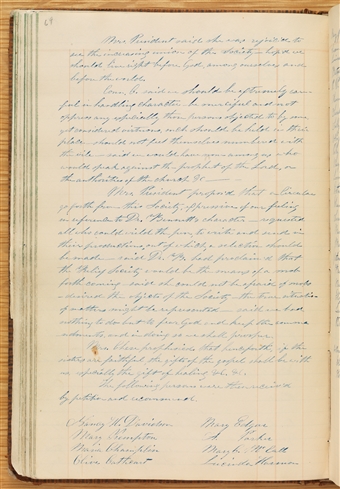 64
Mrs. President said she was rejoiced to
see the increasing union of the Society—hop'd we
should live right before God, among ourselves and
before the world.
Coun. C. said we should be extremely care-
ful in handling character—be merciful and not
oppress any especially
should be held in their
place—should not feel themselves numbered with
the vile— said we would have none among us who
would speak against the prophet of the Lord, or
the authorities of the church &c.
Mrs. President propos'd that a Circular
go forth from this Society, expressive of our feelings
in reference to Dr. Bennett's character— requested
all who could wield the pen, to write and send in
their productions, out of which, a selection should
be made— said Dr. B. had proclaim'd that
the Relief Society would be the means of a mob
forth coming— said she could not be afraid of mobs
—desired the objects of the Society—the true situation
of matters might be represented— said we had
nothing to do but to fear God and keep the comma
ndments, and in doing so we shall prosper.
prophesied that
sisters are faithful the gifts of the gospel shall be with
us especially the gift of healing &c. &c.
The following persons were then received
by petition and recommend.
Nancy H. Davidson Mary Edgar
Mary Kempton A.
Maria Champlin Mary E. McCall
Olive Catheart Lucinda Harmon